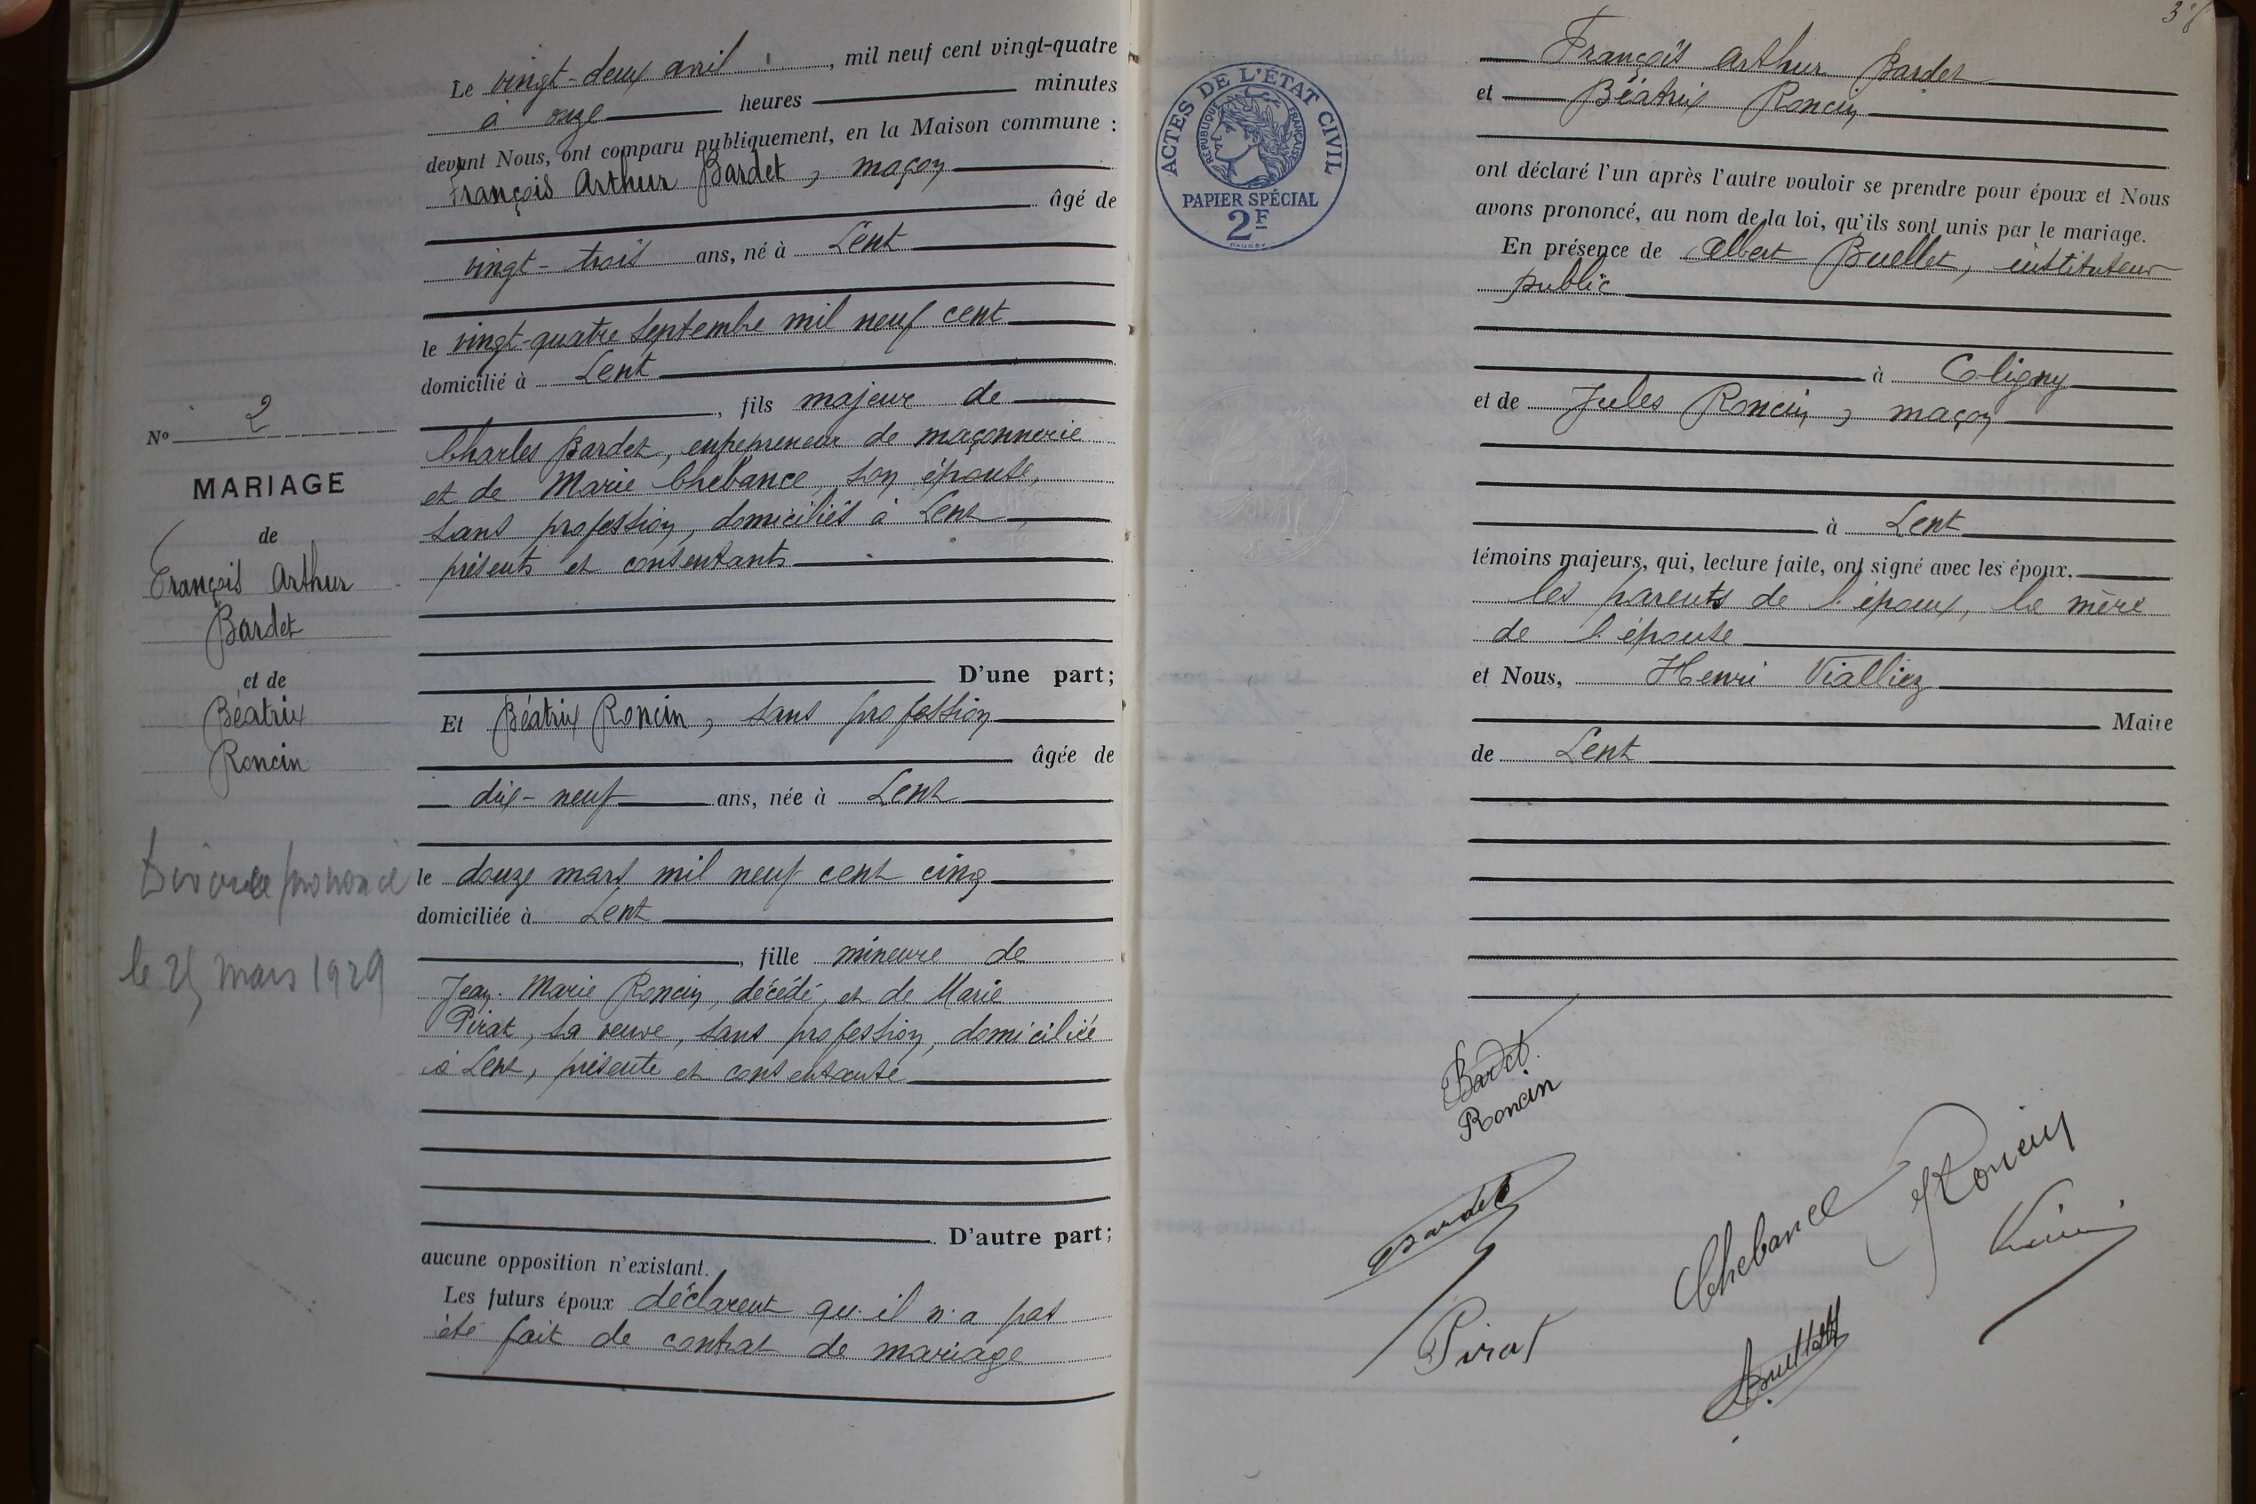 Le vingt-deux avril, mil neuf cent vingt-quatre
à onze heures minutes
devant Nous, ont comparu publiquement, en la Maison commune :
François Arthur Bardet, maçon
âgé de
vingt-trois ans, né à Lent
le vingt-quatre septembre mil neuf cent
domicilié à Lent
, fils majeur de
Charles Bardet, entrepreneur de maçonnerie
et de Marie Chebance, son épouse,
sans profession, domiciliés à Lent
présents et consentants
D'une part;
Et Béatrix Roncin, sans profession
âgée de
dix-neuf ans, née à Lent
le douze mars mil neuf cent cinq
domiciliée à Lent
, fille mineure de
Jean-Marie Roncin, décédé, et de Marie
Pirat, sa veuve, sans profession, domiciliée
à Lent, présente et consentante
D'autre part;
aucune opposition n'existant.
Les futurs époux déclarent qu'il n'a pas
été fait de contrat de mariage
No 2
MARIAGE
de
François Arthur
Bardet
et de
Béatrix
Roncin
Divorce prononcé
le 25 mars 1929
ACTES DE L'ÉTAT CIVIL
RÉPUBLIQUE FRANÇAISE
PAPIER SPÉCIAL
2F
François Arthur Bardet
et Béatrix Roncin
ont déclaré l'un après l'autre vouloir se prendre pour époux et Nous
avons prononcé, au nom de la loi, qu'ils sont unis par le mariage.
En présence de Albert Buellet, instituteur
public
à Coligny
et de Jules Roncin, maçon
à Lent
témoins majeurs, qui, lecture faite, ont signé avec les époux,
les parents de l'époux, la mère
de l'épouse
et Nous, Henri Vialliez
Maire
de Lent
Bardet
Roncin
Bardet
Chebance
Roncin
Pirat
ABuellet